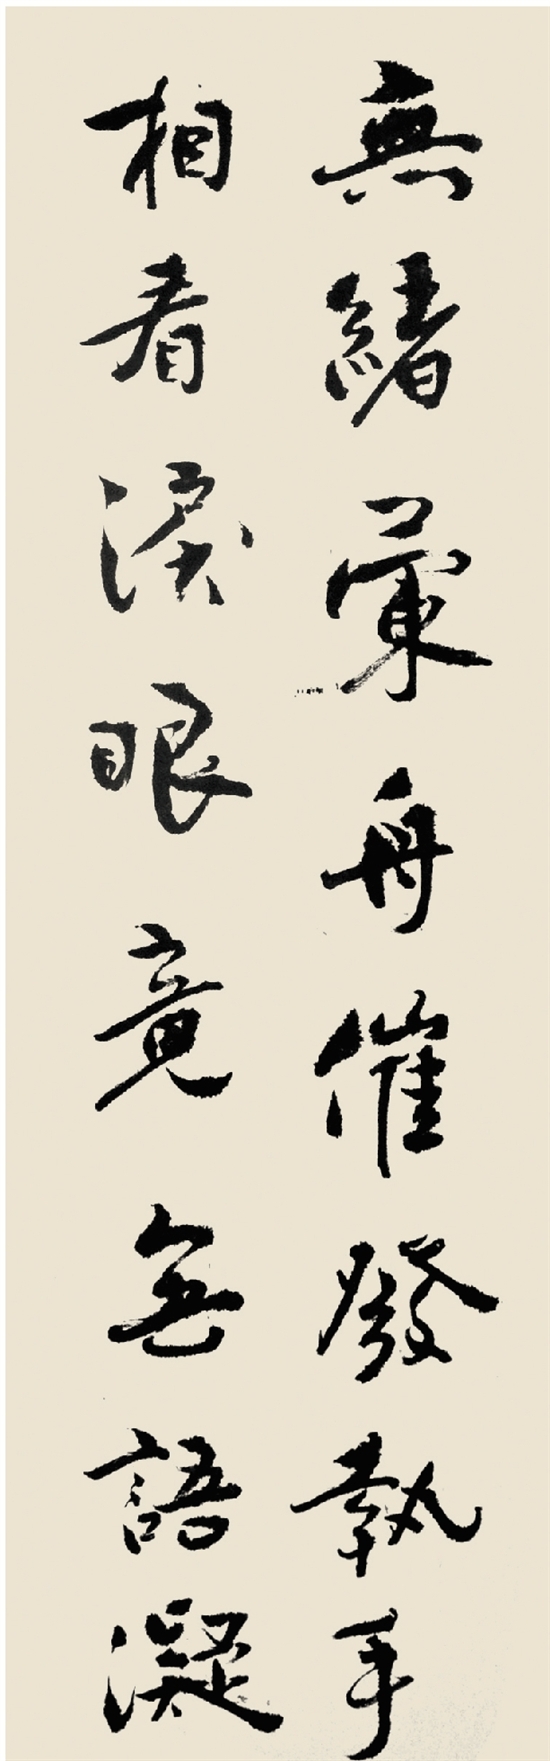 無緒蘭舟催發執手
相看淚眼竟無語凝